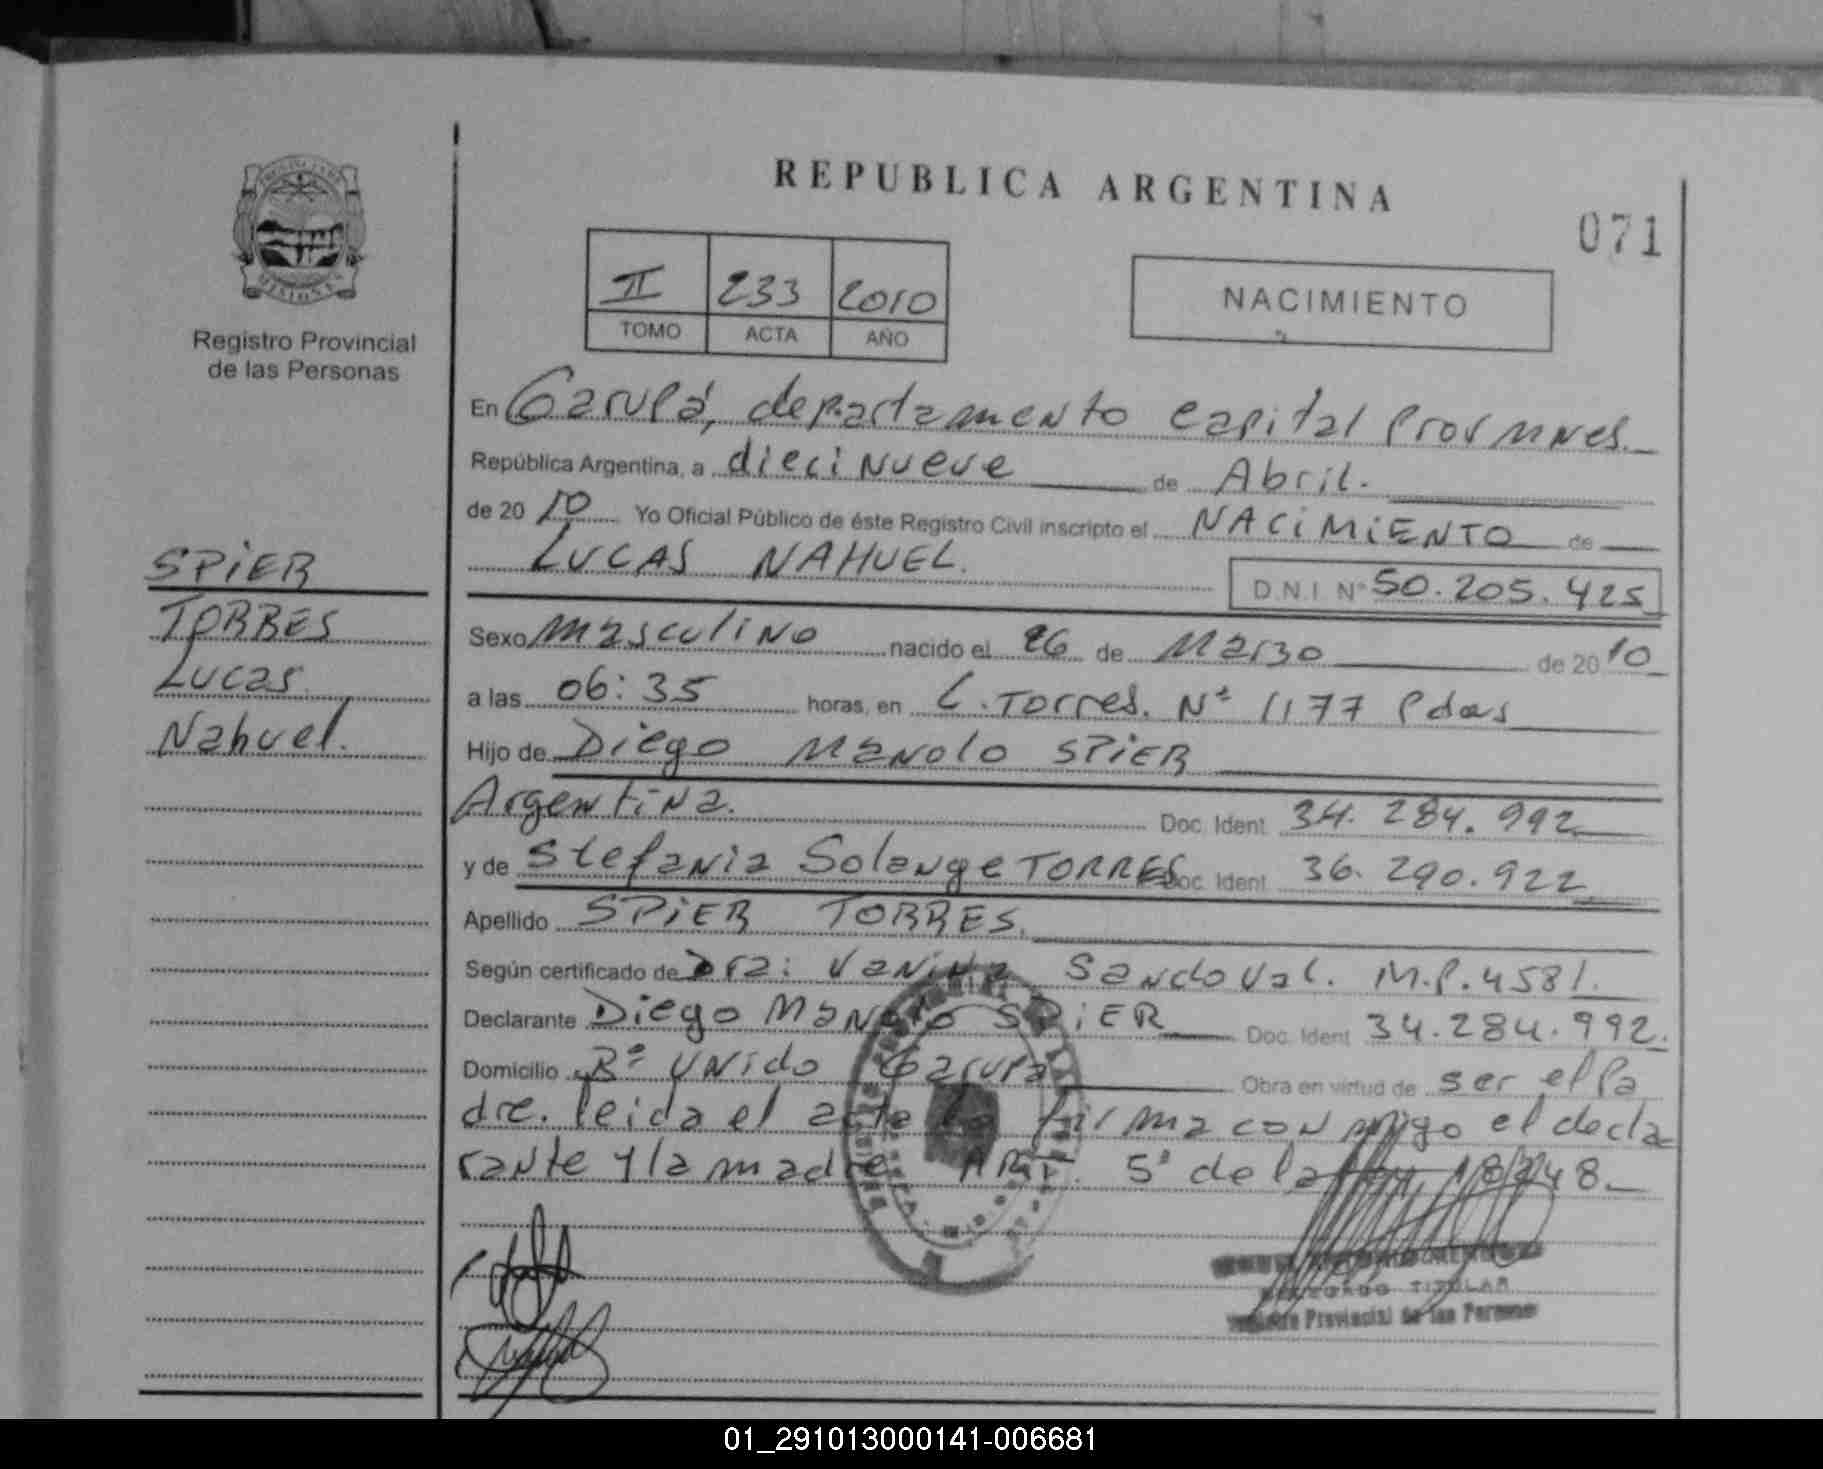 REPUBLICA ARGENTINA
071
MISIONES
Registro Provincial
de las Personas
II 233 2010
TOMO ACTA AÑO
NACIMIENTO
En Garupá, departamento Capital Prov Mnes.
República Argentina, a diecinueve de Abril.
de 20 10 Yo Oficial Público de éste Registro Civil inscripto el NACIMIENTO de
LUCAS NAHUEL.
D.N.I. Nº 50.205.425
SPIER
TORRES
Lucas
Nahuel.
Sexo Masculino nacido el 26 de Marzo de 20 10
a las 06:35 horas, en L. Torres. Nº 1177 Pdas
Hijo de Diego Manolo SPIER
Argentina. Doc. Ident 34.284.992
y de Stefania Solange TORRES Doc. Ident 36.290.922
Apellido SPIER TORRES.
Según certificado de Dra: Vanina Sandoval. M.P. 4581.
Declarante Diego Manolo SPIER Doc. Ident 34.284.992.
Domicilio Bº Unido Garupa Obra en virtud de ser el Pa
dre. leida el acta la firma conmigo el decla
rante y la madre ART. 5º de la 18248.
TITULAR
Provincial de las Personas
01_291013000141-006681